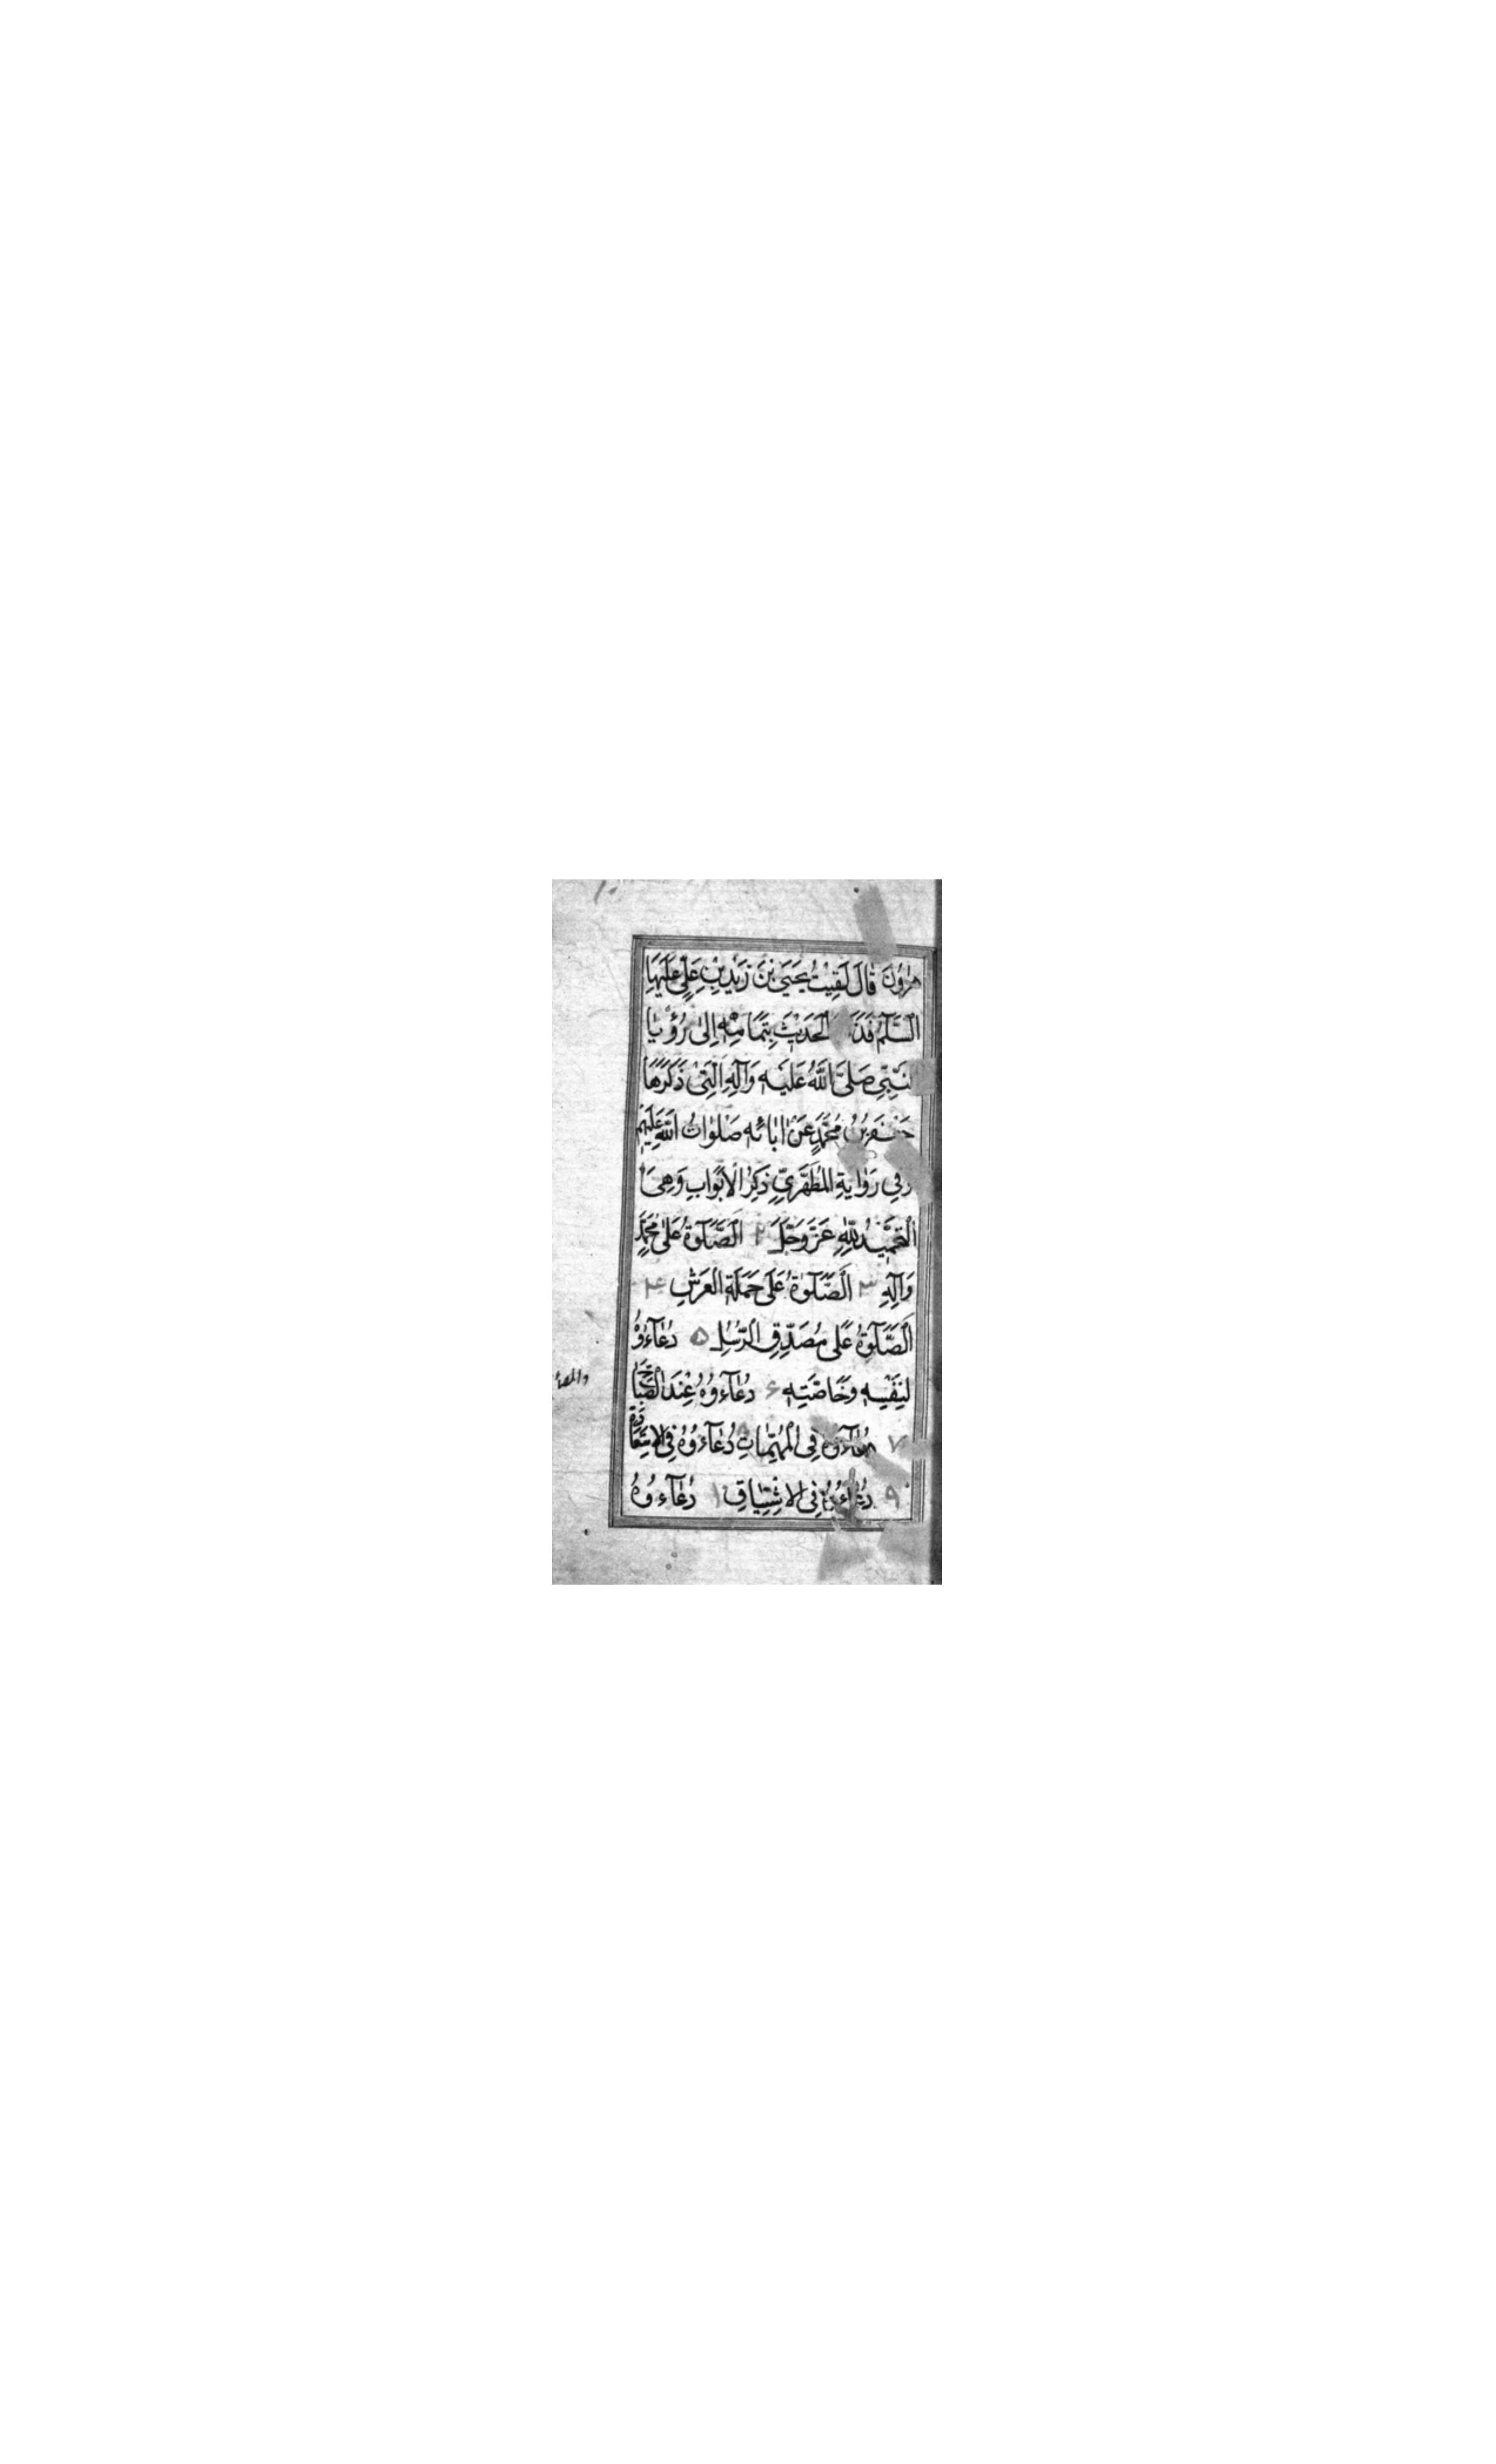 هٰرُونَ قٰالَ لَقِيتُ يَحْيَى بْنَ زَيْدِ بْنِ عَلِيٍّ عَلَيْهَا
السَّلٰمُ فَذَ الْحَدِيْثَ بِتَمٰامِهٖ اِلىٰ رُؤْيٰا
النَّبِيِّ صَلَّى اللّٰهُ عَلَيْهِ وَآلِهِ الَّتِيْ ذَكَرَهٰا
جَعْفَرُ بْنُ مُحَمَّدٍ عَنْ اٰبٰائِهِ صَلَوٰاتُ اللّٰهِ عَلَيْهِمْ
وَفِي رَوٰايَةِ الْمُطَهَّرِيِّ ذِكْرُ الْاَبْوٰابِ وَهِيَ ١
التَّحْمِيْدُ لِلّٰهِ عَزَّ وَجَلَّ ٢ اَلصَّلٰوةُ عَلىٰ مُحَمَّدٍ
وَآلِهِ ٣ اَلصَّلٰوةُ عَلىٰ حَمَلَةِ الْعَرْشِ ۴
اَلصَّلٰوةُ عَلىٰ مُصَدِّقِ الرُّسُلِ ۵ دُعٰآءُوُهُ
لِنَفْسِهِ وَخٰاصَّتِهِ ۶ دُعٰآءُوُهُ عِنْدَ الصَّبٰاحِ
والمسآء
٧ دُعٰآءُوُهُ فِي الْمُهِمّٰاتِ ٨ دُعٰآءُوُهُ فِي الْاِسْتِعٰاذَةِ
٩ دُعٰآءُوُهُ فِي الْاِشْتِيٰاقِ ١٠ دُعٰآءُوُهُ